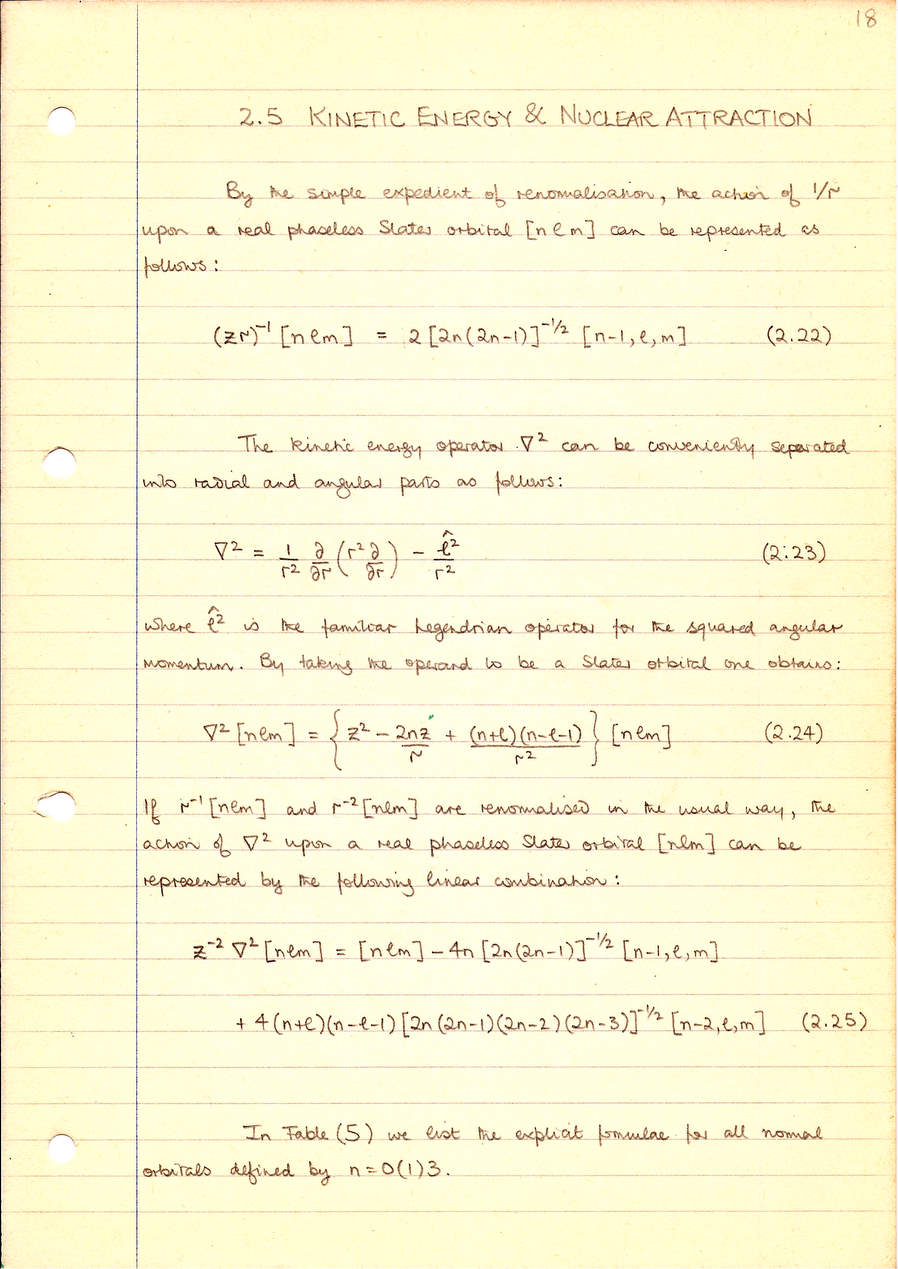 18
2.5 KINETIC ENERGY & NUCLEAR ATTRACTION
By the simple expedient of renormalisation, the action of 1/r
upon a real phaseless Slater orbital [nℓm] can be represented as
follows:
(zr)⁻¹ [nℓm] = 2 [2n(2n-1)]^-1/2 [n-1, ℓ, m] (2.22)
The kinetic energy operator ∇² can be conveniently separated
into radial and angular parts as follows:
∇² = 1/r² ∂/∂r (r² ∂/∂r) - ℓ̂²/r² (2.23)
where ℓ̂² is the familiar Legendrian operator for the squared angular
momentum. By taking the operand to be a Slater orbital one obtains:
∇² [nℓm] = {z² - 2nz/r + (n+ℓ)(n-ℓ-1)/r²} [nℓm] (2.24)
If r⁻¹[nℓm] and r⁻²[nℓm] are renormalised in the usual way, the
action of ∇² upon a real phaseless Slater orbital [nlm] can be
represented by the following linear combination:
z⁻² ∇² [nℓm] = [nℓm] - 4n [2n(2n-1)]^-1/2 [n-1, ℓ, m]
+ 4(n+ℓ)(n-ℓ-1) [2n(2n-1)(2n-2)(2n-3)]^-1/2 [n-2, ℓ, m] (2.25)
In Table (5) we list the explicit formulae for all normal
orbitals defined by n = 0(1)3.